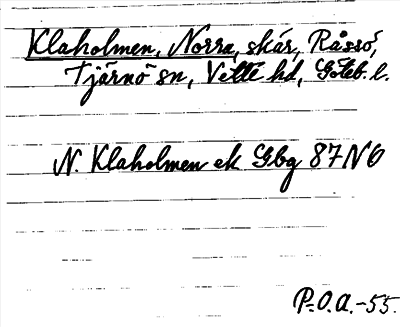 Klaholmen, Norra, skär, Råssö,
Tjärnö sn, Vette hd, Göteb. l.
N. Klaholmen ek Gbg 87 NO
P.O.A.-55.